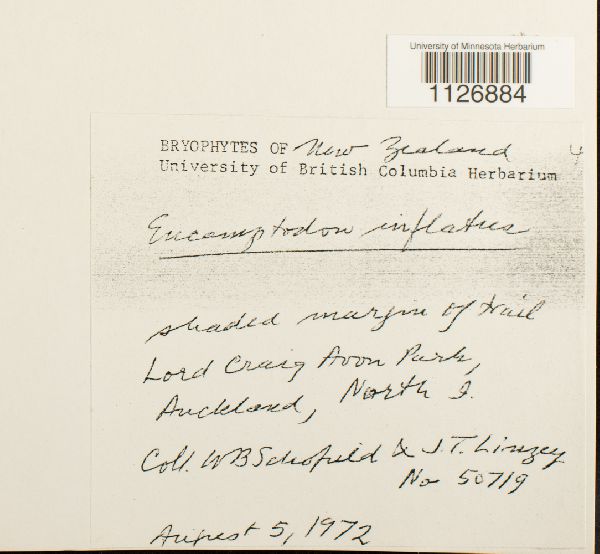 University of Minnesota Herbarium
1126884
BRYOPHYTES OF New Zealand
University of British Columbia Herbarium
Eucamptodon inflatus
shaded margin of trail
Lord Craig Avon Park,
Auckland, North I.
Coll. WB Schofield & J.T. Linzey
No 50719
August 5, 1972